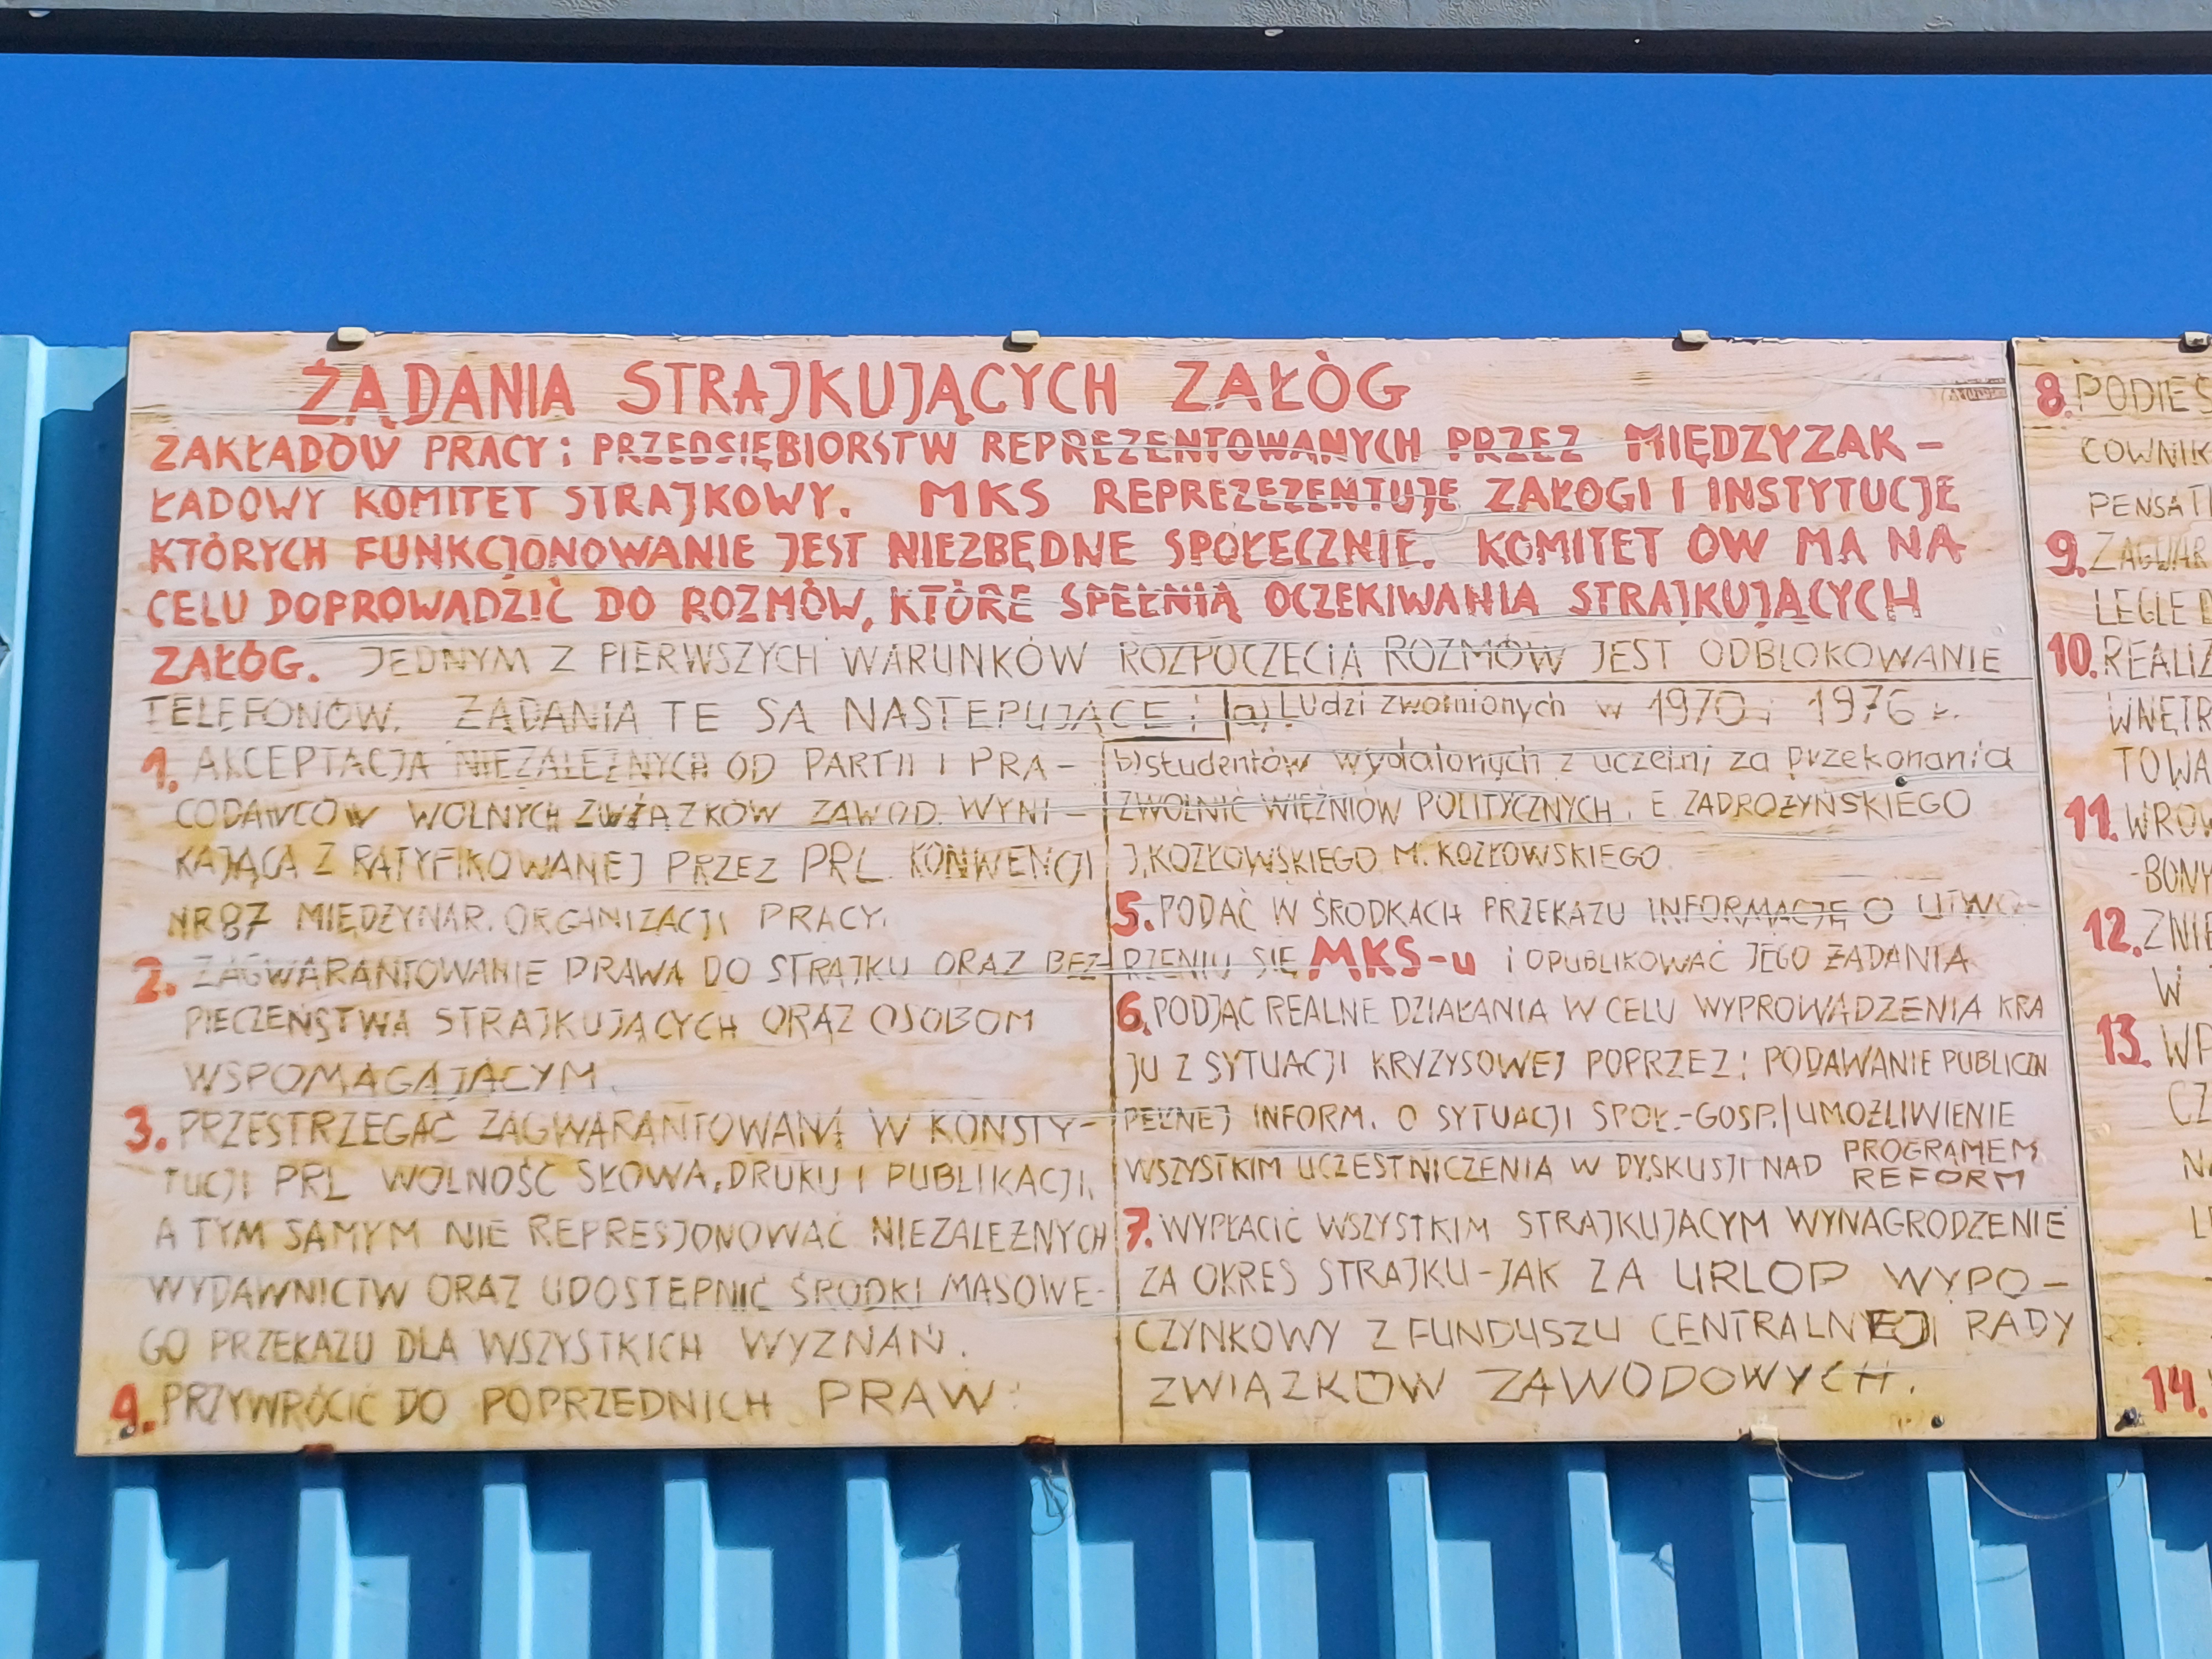 ŻĄDANIA STRAJKUJĄCYCH ZAŁÒG
ZAKŁADOW PRACY i PRZEDSIĘBIORSTW REPREZENTOWANYCH PRZEZ MIĘDZYZAK-
ŁADOWY KOMITET STRAJKOWY. MKS REPREZEZENTUJE ZAŁOGI I INSTYTUCJE
KTÓRYCH FUNKCJONOWANIE JEST NIEZBĘDNE SPOŁECZNIE. KOMITET ÓW MA NA
CELU DOPROWADZIĆ DO ROZMÓW, KTÓRE SPEŁNIĄ OCZEKIWANIA STRAJKUJĄCYCH
ZAŁÓG. JEDNYM Z PIERWSZYCH WARUNKÓW ROZPOCZĘCIA ROZMÓW JEST ODBLOKOWANIE
TELEFONÓW. ŻĄDANIA TE SĄ NASTĘPUJĄCE:
1. AKCEPTACJA NIEZALEŻNYCH OD PARTII I PRA-
CODAWCÓW WOLNYCH ZWIĄZKÓW ZAWOD. WYNI-
KAJĄCA Z RATYFIKOWANEJ PRZEZ PRL KONWENCJI
NR 87 MIĘDZYNAR. ORGANIZACJI PRACY.
2. ZAGWARANTOWANIE PRAWA DO STRAJKU ORAZ BEZ-
PIECZEŃSTWA STRAJKUJĄCYCH ORAZ OSOBOM
WSPOMAGAJĄCYM.
3. PRZESTRZEGAĆ ZAGWARANTOWANĄ W KONSTY-
TUCJI PRL WOLNOŚĆ SŁOWA, DRUKU I PUBLIKACJI,
A TYM SAMYM NIE REPRESJONOWAĆ NIEZALEŻNYCH
WYDAWNICTW ORAZ UDOSTĘPNIĆ ŚRODKI MASOWE-
GO PRZEKAZU DLA WSZYSTKICH WYZNAŃ.
4. PRZYWRÓCIĆ DO POPRZEDNICH PRAW:
a) LUdzi zwolnionych w 1970 i 1976 r.
b) studentów wydalonych z uczelni za przekonania
ZWOLNIĆ WIĘŹNIÓW POLITYCZNYCH: E. ZADROŻYŃSKIEGO
J. KOZŁOWSKIEGO M. KOZŁOWSKIEGO
5. PODAĆ W ŚRODKACH PRZEKAZU INFORMACJĘ O UTWO-
RZENIU SIĘ MKS-u i OPUBLIKOWAĆ JEGO ŻĄDANIA
6. PODJĄĆ REALNE DZIAŁANIA W CELU WYPROWADZENIA KRA
JU Z SYTUACJI KRYZYSOWEJ POPRZEZ: PODAWANIE PUBLICZN
PEŁNEJ INFORM. O SYTUACJI SPOŁ.-GOSP. / UMOŻLIWIENIE
WSZYSTKIM UCZESTNICZENIA W DYSKUSJI NAD PROGRAMEM
REFORM
7. WYPŁACIĆ WSZYSTKIM STRAJKUJĄCYM WYNAGRODZENIE
ZA OKRES STRAJKU-JAK ZA URLOP WYPO-
CZYNKOWY Z FUNDUSZU CENTRALNEJ RADY
ZWIĄZKÓW ZAWODOWYCH.
8. PODIEŚ
COWNIK
PENSAT
9. ZAGWAR
LEGŁE D
10. REALIZA
WNĘTR
TOWA
11. WROW
-BONY
12. ZNIE
W
13. WP
CZ
NA
L
14.